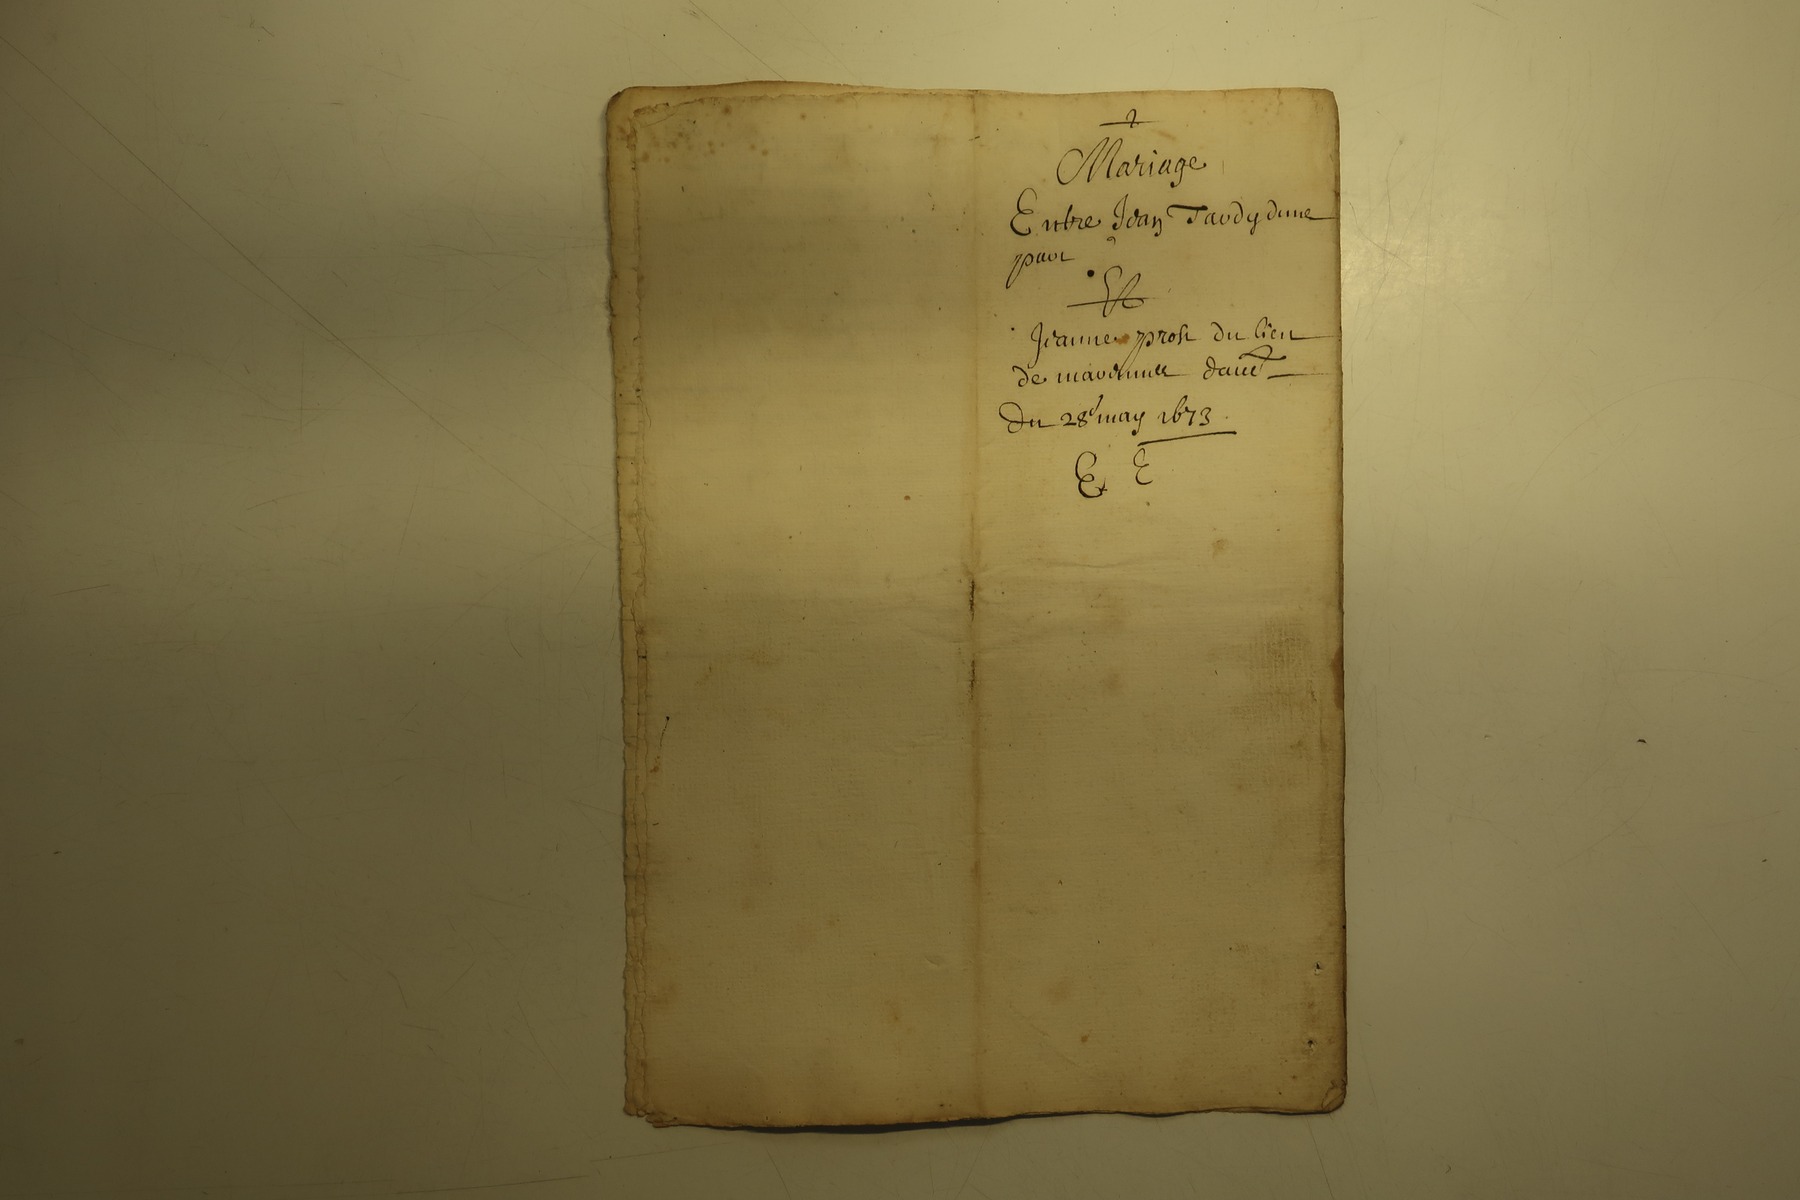 Mariage
Entre Jean Tardy dune
part
Et
Jeanne prost du lieu
de
Du 28e may 1673
E E